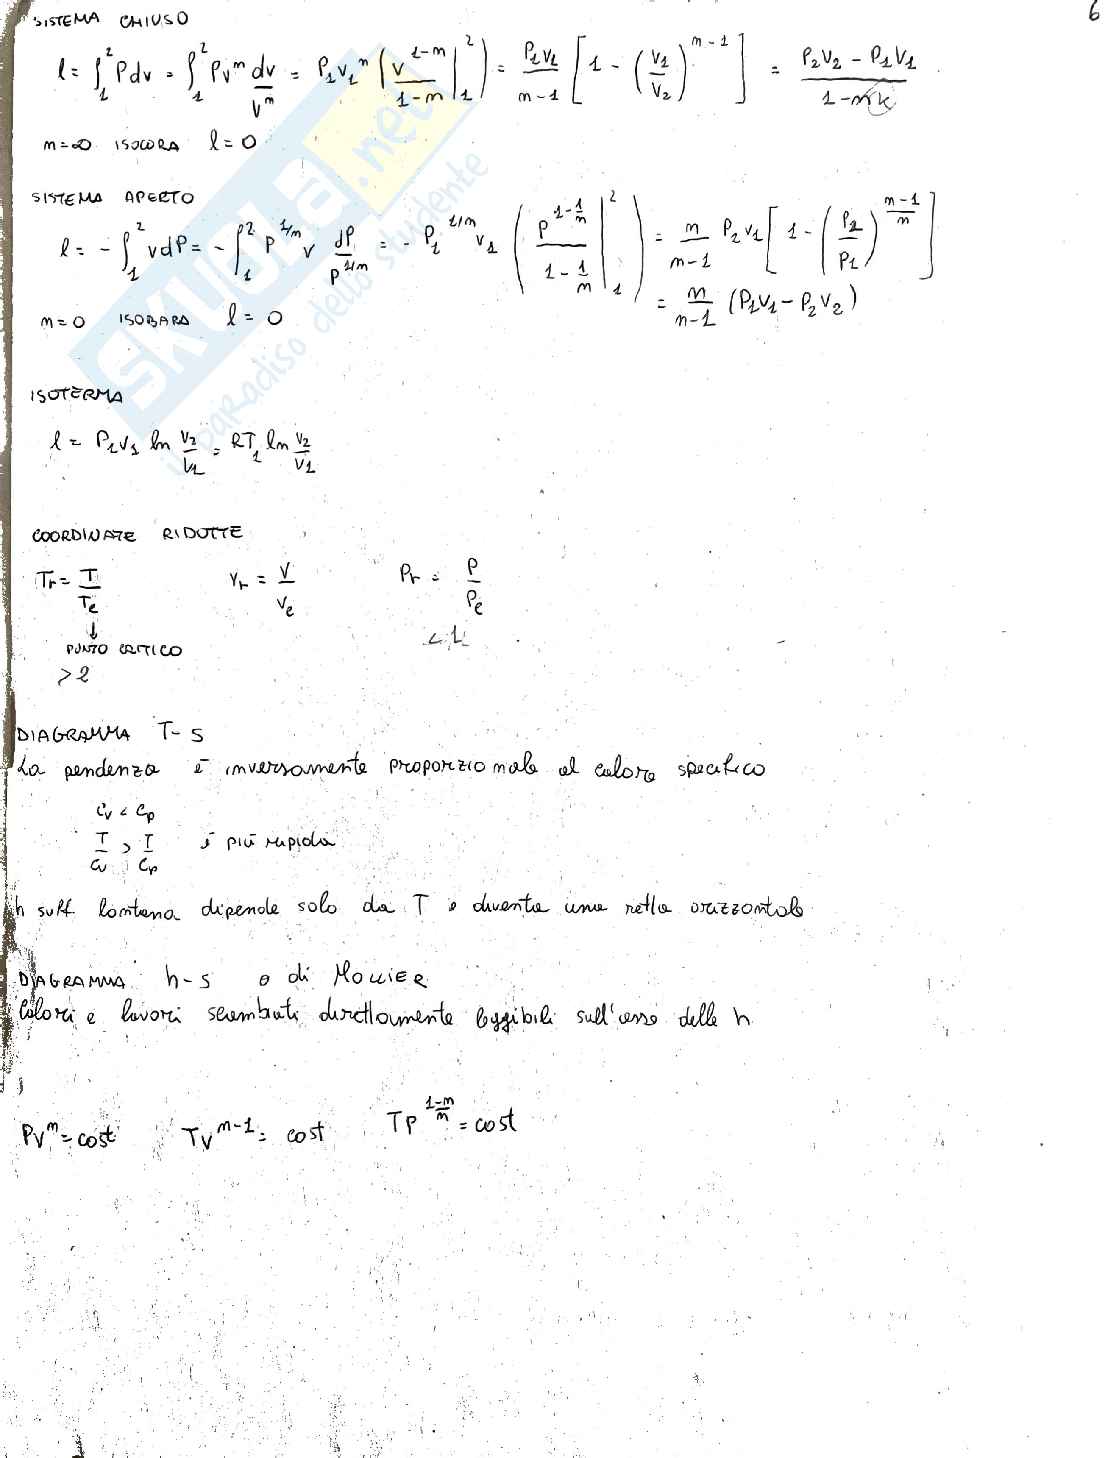 6
SISTEMA CHIUSO
l = ∫₁² P dv = ∫₁² Pv^n dv/v^n = P₁v₁^n ( v^(1-n)/(1-n) |₁² ) = P₁v₁/(n-1) [ 1 - (v₁/v₂)^(n-1) ] = (P₂v₂ - P₁v₁)/(1-n k)
n=∞ ISOCORA l = 0
SISTEMA APERTO
l = - ∫₁² v dP = - ∫₁² P^(1/n) v dP/P^(1/n) = - P₁^(1/n) v₁ ( P^(1-1/n)/(1-1/n) |₁² ) = n/(n-1) P₁v₁ [ 1 - (P₂/P₁)^((n-1)/n) ]
= n/(n-1) (P₁v₁ - P₂v₂)
n=0 ISOBARA l = 0
ISOTERMA
l = P₁v₁ ln v₂/v₁ = RT₁ ln v₂/v₁
COORDINATE RIDOTTE
Tr = T/Tc vr = v/vc Pr = P/Pc
↓ <1
PUNTO CRITICO
>2
DIAGRAMMA T-s
La pendenza è inversamente proporzionale al calore specifico
cv < cp
T/cv > T/cp è più rapida
h suff. lontana dipende solo da T e diventa una retta orizzontale
DIAGRAMMA h-s o di MOLLIER
Calori e lavori scambiati direttamente leggibili sull'asse delle h
Pv^n = cost Tv^(n-1) = cost TP^((1-n)/n) = cost
SKUOLA.net
il paradiso dello studente